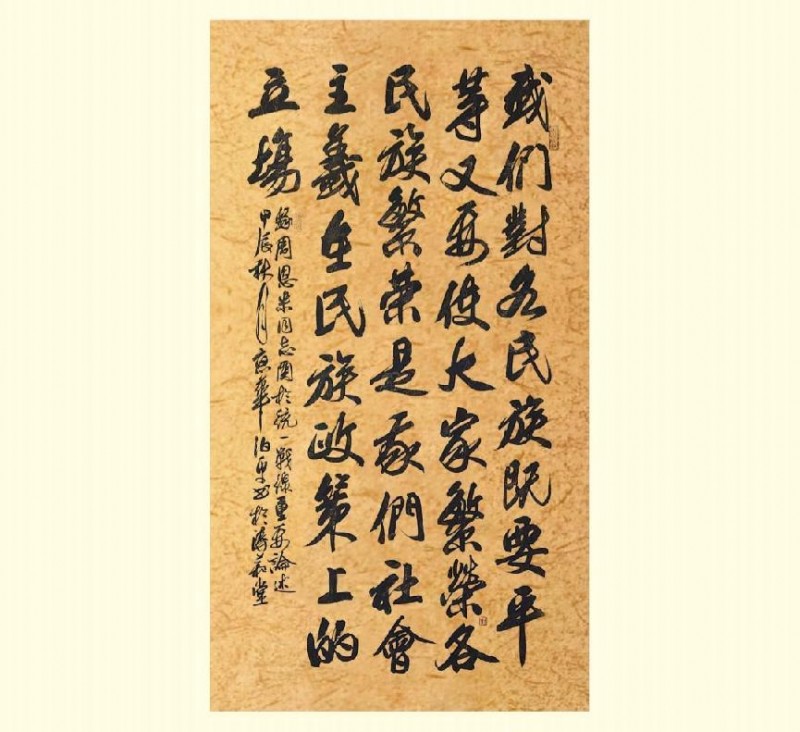 我們對各民族既要平
等又要使大家繁榮各
民族繁榮是我們社會
主義在民族政策上的
立場
錄周恩來同志關於統一戰線重要論述
甲辰秋月 華 於 堂